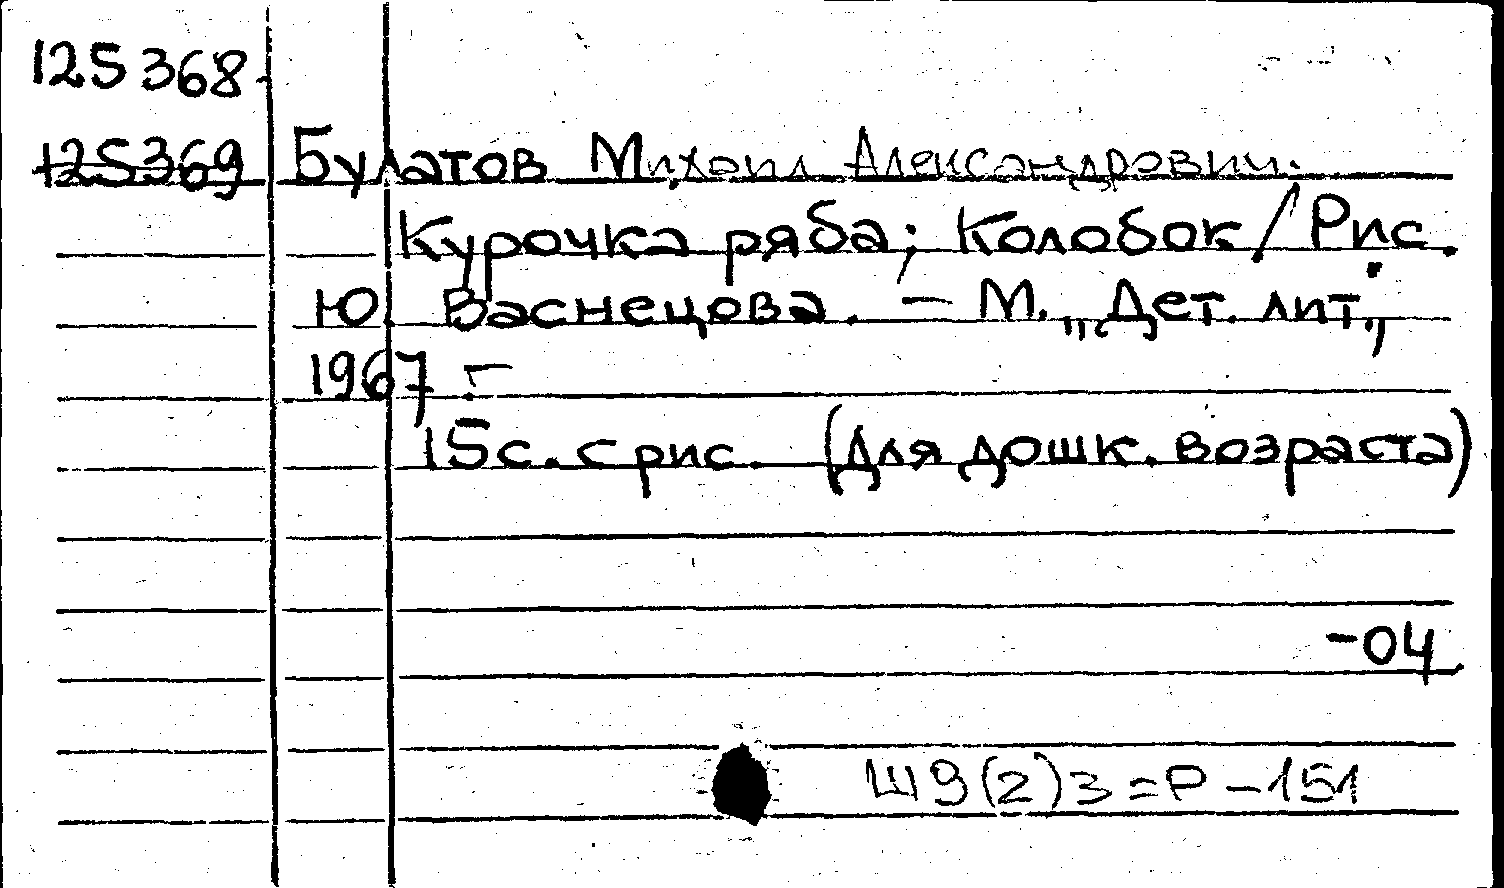 125368
125369 Булатов Михаил Александрович.
Курочка ряба; Колобок / Рис.
Ю. Васнецова. - М. „Дет. лит.",
1967 -
15 с. с рис. (Для дошк. возраста)
-04
Ш9(2)3=Р-151